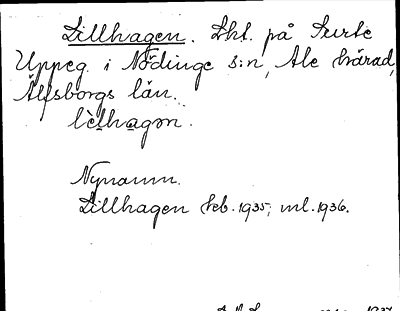 Lillhagen. Lht. på Surte
Uppeg. i Nödinge s:n, Ale härad,
Älfsborgs län.
lèlhagən.
Nynamn.
Lillhagen beb. 1935; ml. 1936.